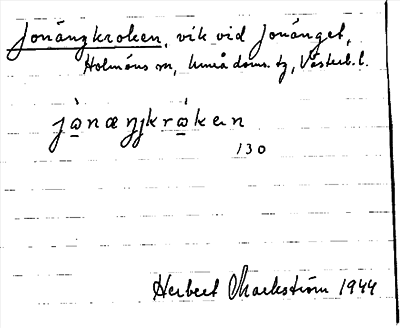 Jonängkroken, vik vid Jonänget,
Holmöns sn, Umeå doms. tg, Västerb. l.
jònæŋkròken
130
Herbert Markström 1944